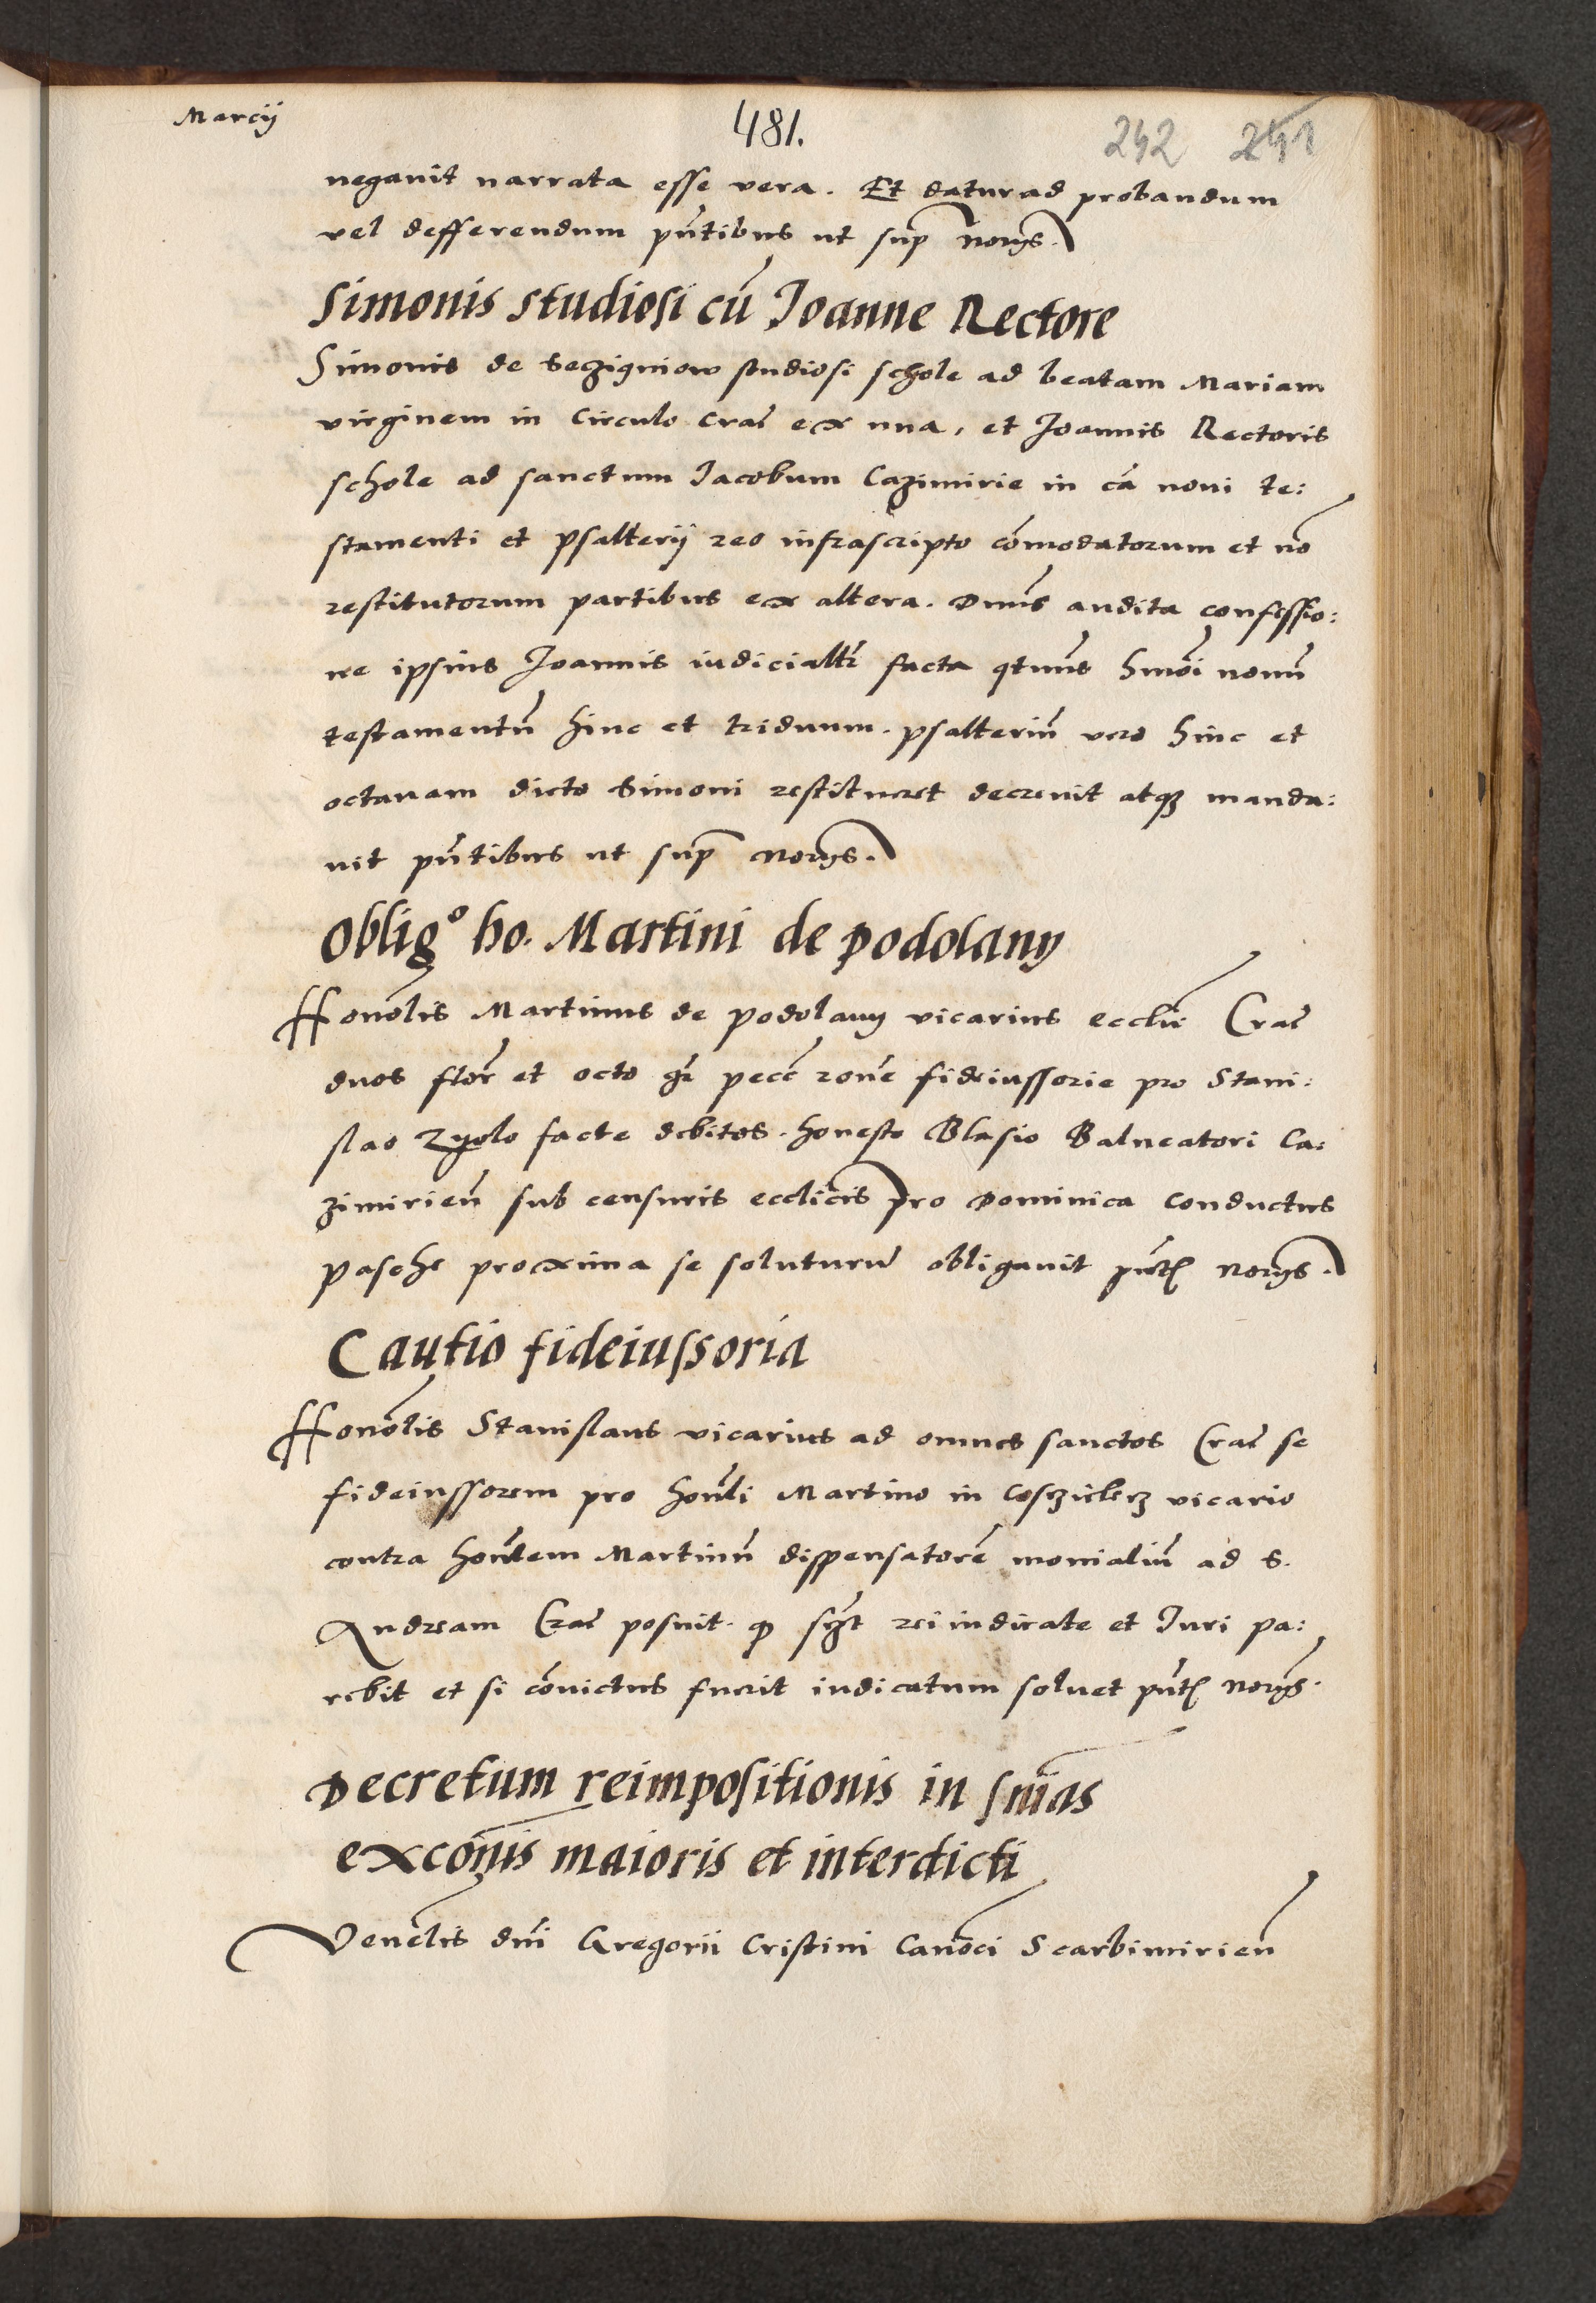 Marcij
481.
242 241
negauit narrata esse vera. Et datur ad probandum
vel defferendum pñtibus ut sup norijs.
Simonis studiosi cũ Ioanne Rectore
Simonis de Seczigniow studiosi schole ad beatam Mariam
virginem in Circulo Crac̃ ex una, et Joannis Rectoris
schole ad sanctum Iacobum Cazimirie in cã noui te:
stamenti et psalterij reo infrascripto cõmodatorum et nõ
restitutorum partibus ex altera. Dnus̃ audita confessio:
ne ipsius Joannis iudicialtr̃ facta qtnus̃ hmõi nouũ
testamentũ hinc et triduum. psalteriũ vero hinc et
octauam dicto Simoni restitueret decreuit atq3 manda:
uit pñtibus ut sup norijs.
Oblig° ho. Martini de podolany
Honõlis Martinus de podolany vicarius ecclie Crac̃
duos flor̃ et octo gr̃ pecc̃ rone fideiussorie pro Stani:
slao Zyolo facte debitos. honesto Blasio Balneatori Ca:
zimirieñ sub censuris ecclicis pro Dominica conductus
pasche proxima se soluturũ obligauit pñt norijs.
Cautio fideiussoria
Honõlis Stanislaus vicarius ad omnes sanctos Crac̃ se
fideiussorem pro honñli Martino in vicario
contra honñlem Martinũ dispensatorẽ monialiũ ad S.
Andream Crac̃ posuit. q rei iudicate et Iuri pa:
rebit et si cõuictus fuerit iudicatum soluet pñt norijs.
Decretum reimpositionis in snias
exconis maioris et interdicti
Venelis dñi Gregorii Cristini Canõci Scarbimirieñ